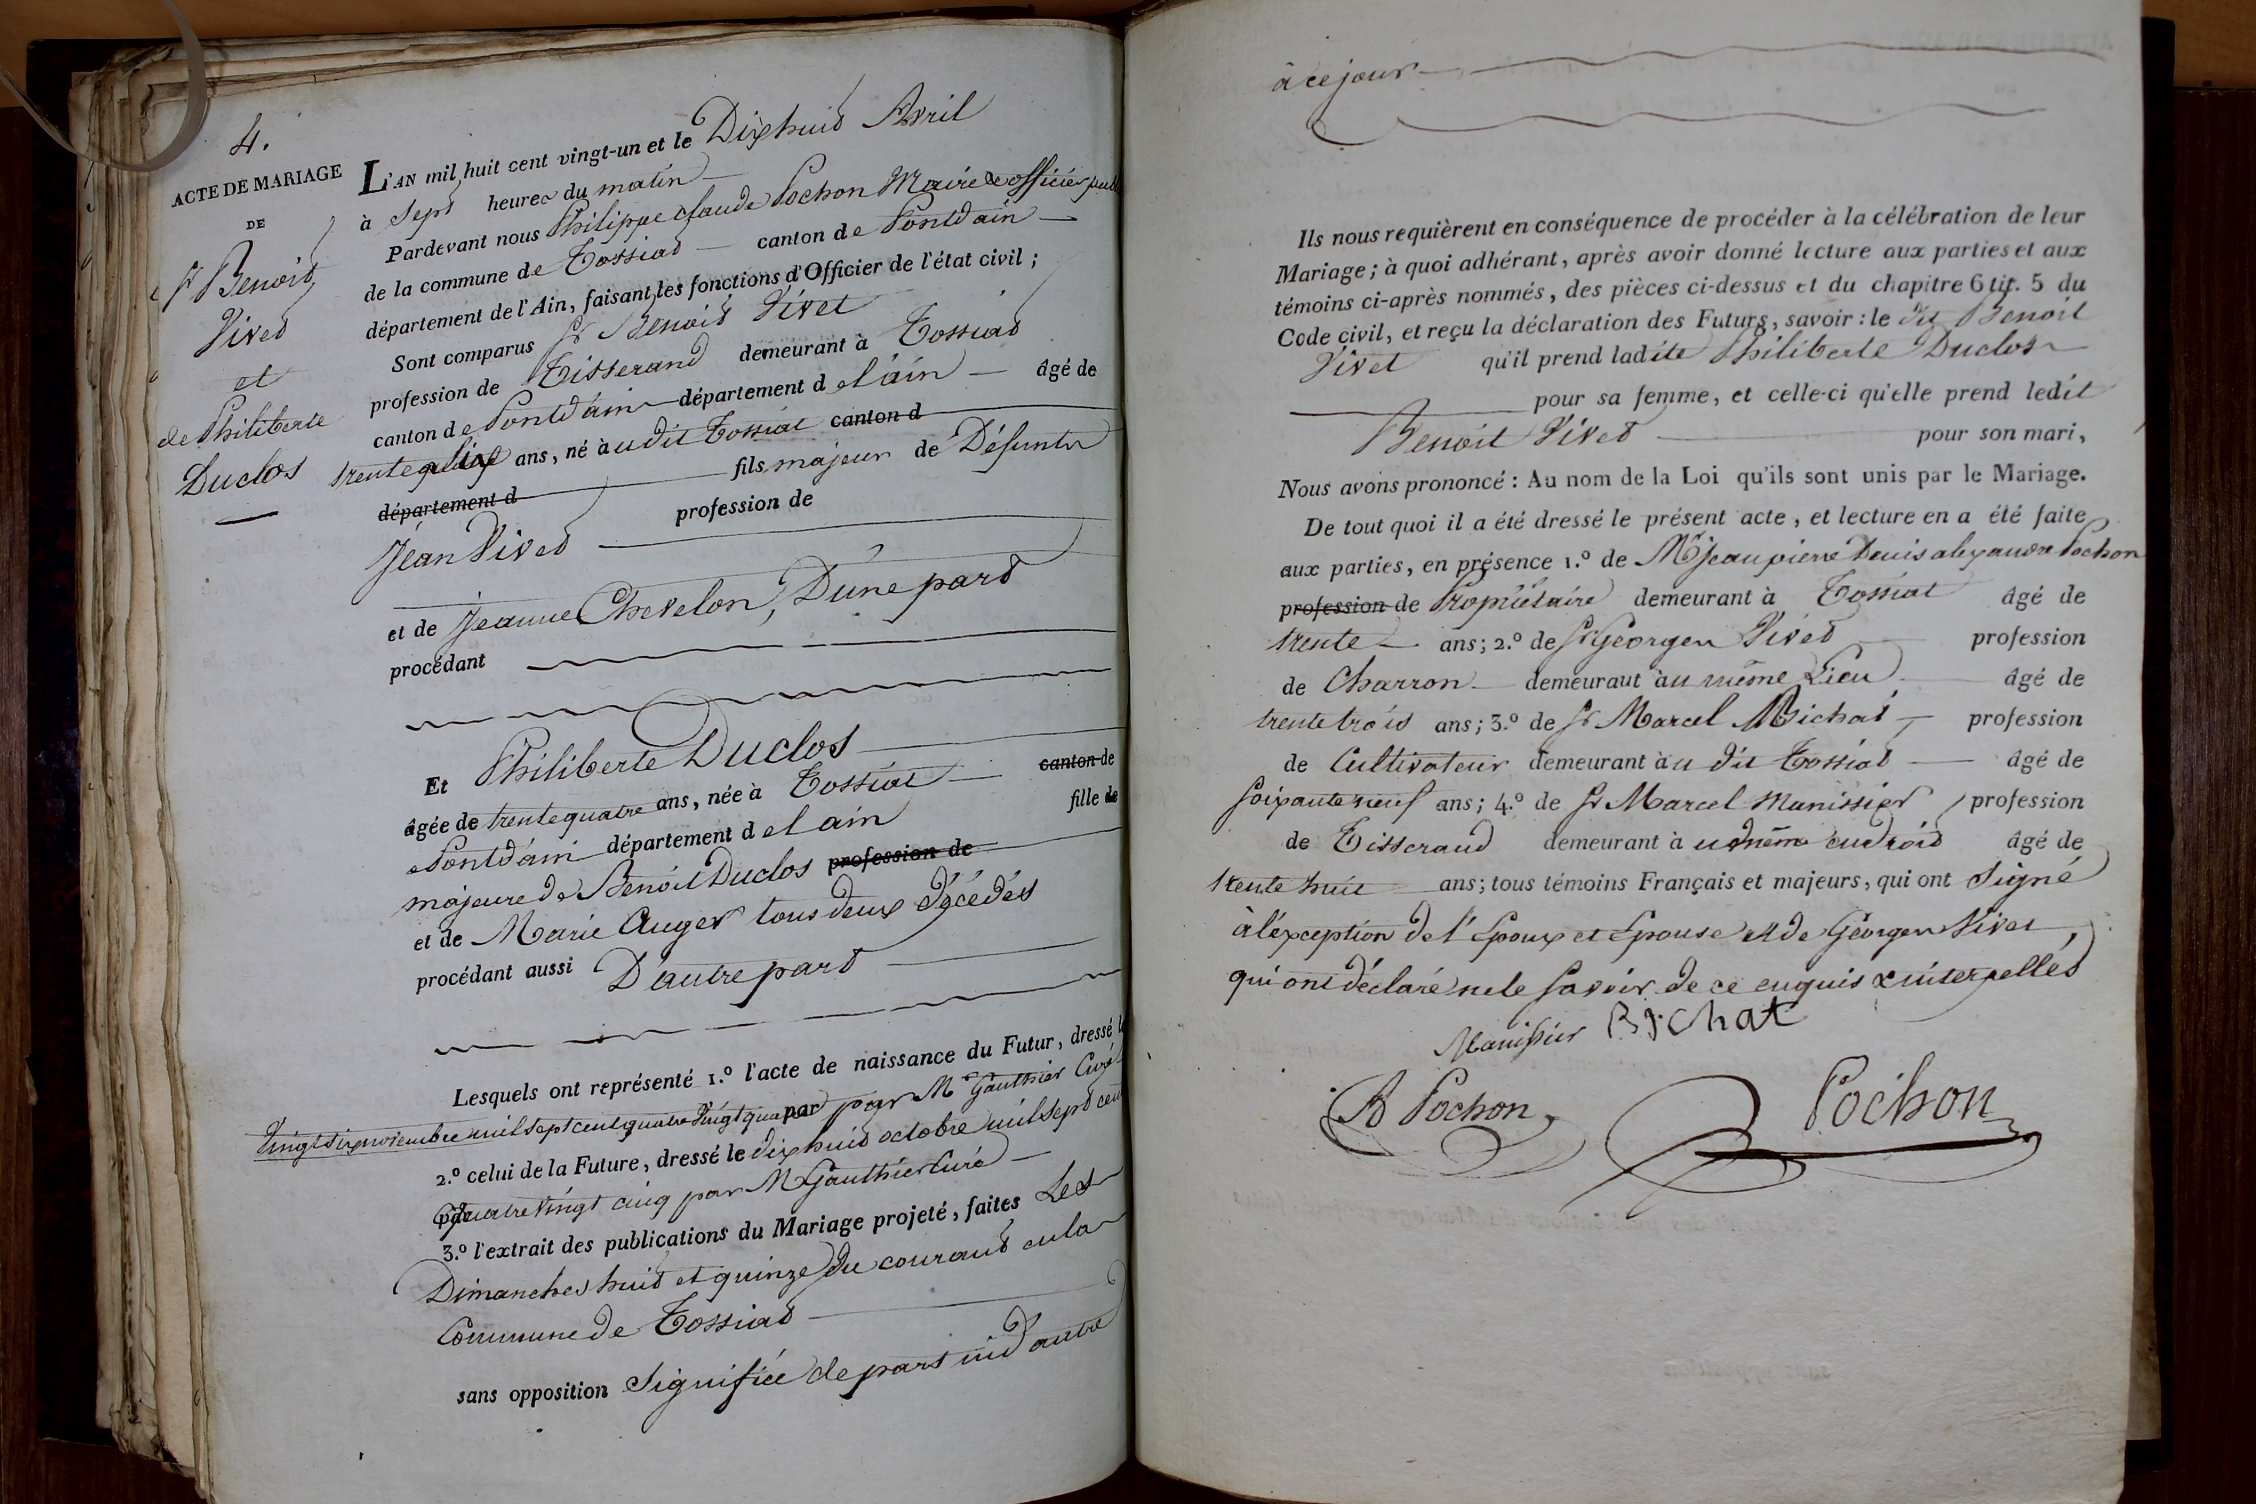 4.
ACTE DE MARIAGE
DE
Sr Benoit
Vivet
et
de Philiberte
Duclos
L'AN mil huit cent vingt-un et le Dixhuit Avril
à Sept heures du matin
Pardevant nous Philippe Claude Pochon Maire & officier
de la commune de Tossiat canton de Pontdain
département de l'Ain, faisant les fonctions d'Officier de l'état civil ;
Sont comparus Sr Benoit Vivet
profession de Tisserand demeurant à Tossiat
canton de Pontdain département de l'ain âgé de
ans, né à udit Tossiat canton d
département d fils majeur de Défunts
Jean Vivet profession de
et de Jeanne Chevelon, D'une part
procédant
Et Philiberte Duclos
âgée de trente quatre ans, née à Tossiat canton de
Pontdain département de l'ain fille de
majeure de Benoit Duclos profession de
et de Marie Auger tous deux décédés
procédant aussi D'autre part
Lesquels ont représenté 1.º l'acte de naissance du Futur, dressé le
Vingt six novembre mil sept cent quatre Vingt par par Mr Gauthier Curé
2.º celui de la Future, dressé le dixhuit octobre mil sept cent
par quatre Vingt cinq par Mr Gauthier Curé
3.º l'extrait des publications du Mariage projeté, faites Les
Dimanches huit et quinze du courant en la
Commune de Tossiat
sans opposition Signifiée de part ni d'autre
à ce jour
Ils nous requièrent en conséquence de procéder à la célébration de leur
Mariage ; à quoi adhérant, après avoir donné lecture aux parties et aux
témoins ci-après nommés, des pièces ci-dessus et du chapitre 6 tit. 5 du
Code civil, et reçu la déclaration des Futurs, savoir : le dit Benoit
Vivet qu'il prend ladite Philiberte Duclos
pour sa femme, et celle-ci qu'elle prend ledit
Benoit Vivet pour son mari,
Nous avons prononcé : Au nom de la Loi qu'ils sont unis par le Mariage.
De tout quoi il a été dressé le présent acte, et lecture en a été faite
aux parties, en présence 1.º de Mr Jean pierre Denis alexandre Pochon
profession de Propriétaire demeurant à Tossiat âgé de
trente ans ; 2.º de Sr Georges Vivet profession
de Charron demeurant à u même Lieu âgé de
trente trois ans ; 3.º de Sr Marcel Bichat profession
de Cultivateur demeurant à u dit Tossiat âgé de
Soixante neuf ans ; 4.º de Sr Marcel Manissier profession
de Tisserand demeurant à u même endroit âgé de
trente huit ans ; tous témoins Français et majeurs, qui ont Signé
à l'exception de l'Epoux et Epouse et de Georges Vivet,
qui ont déclaré ne le Savoir de ce enquis & interpellés
Manissier Bichat
A Pochon Pochon